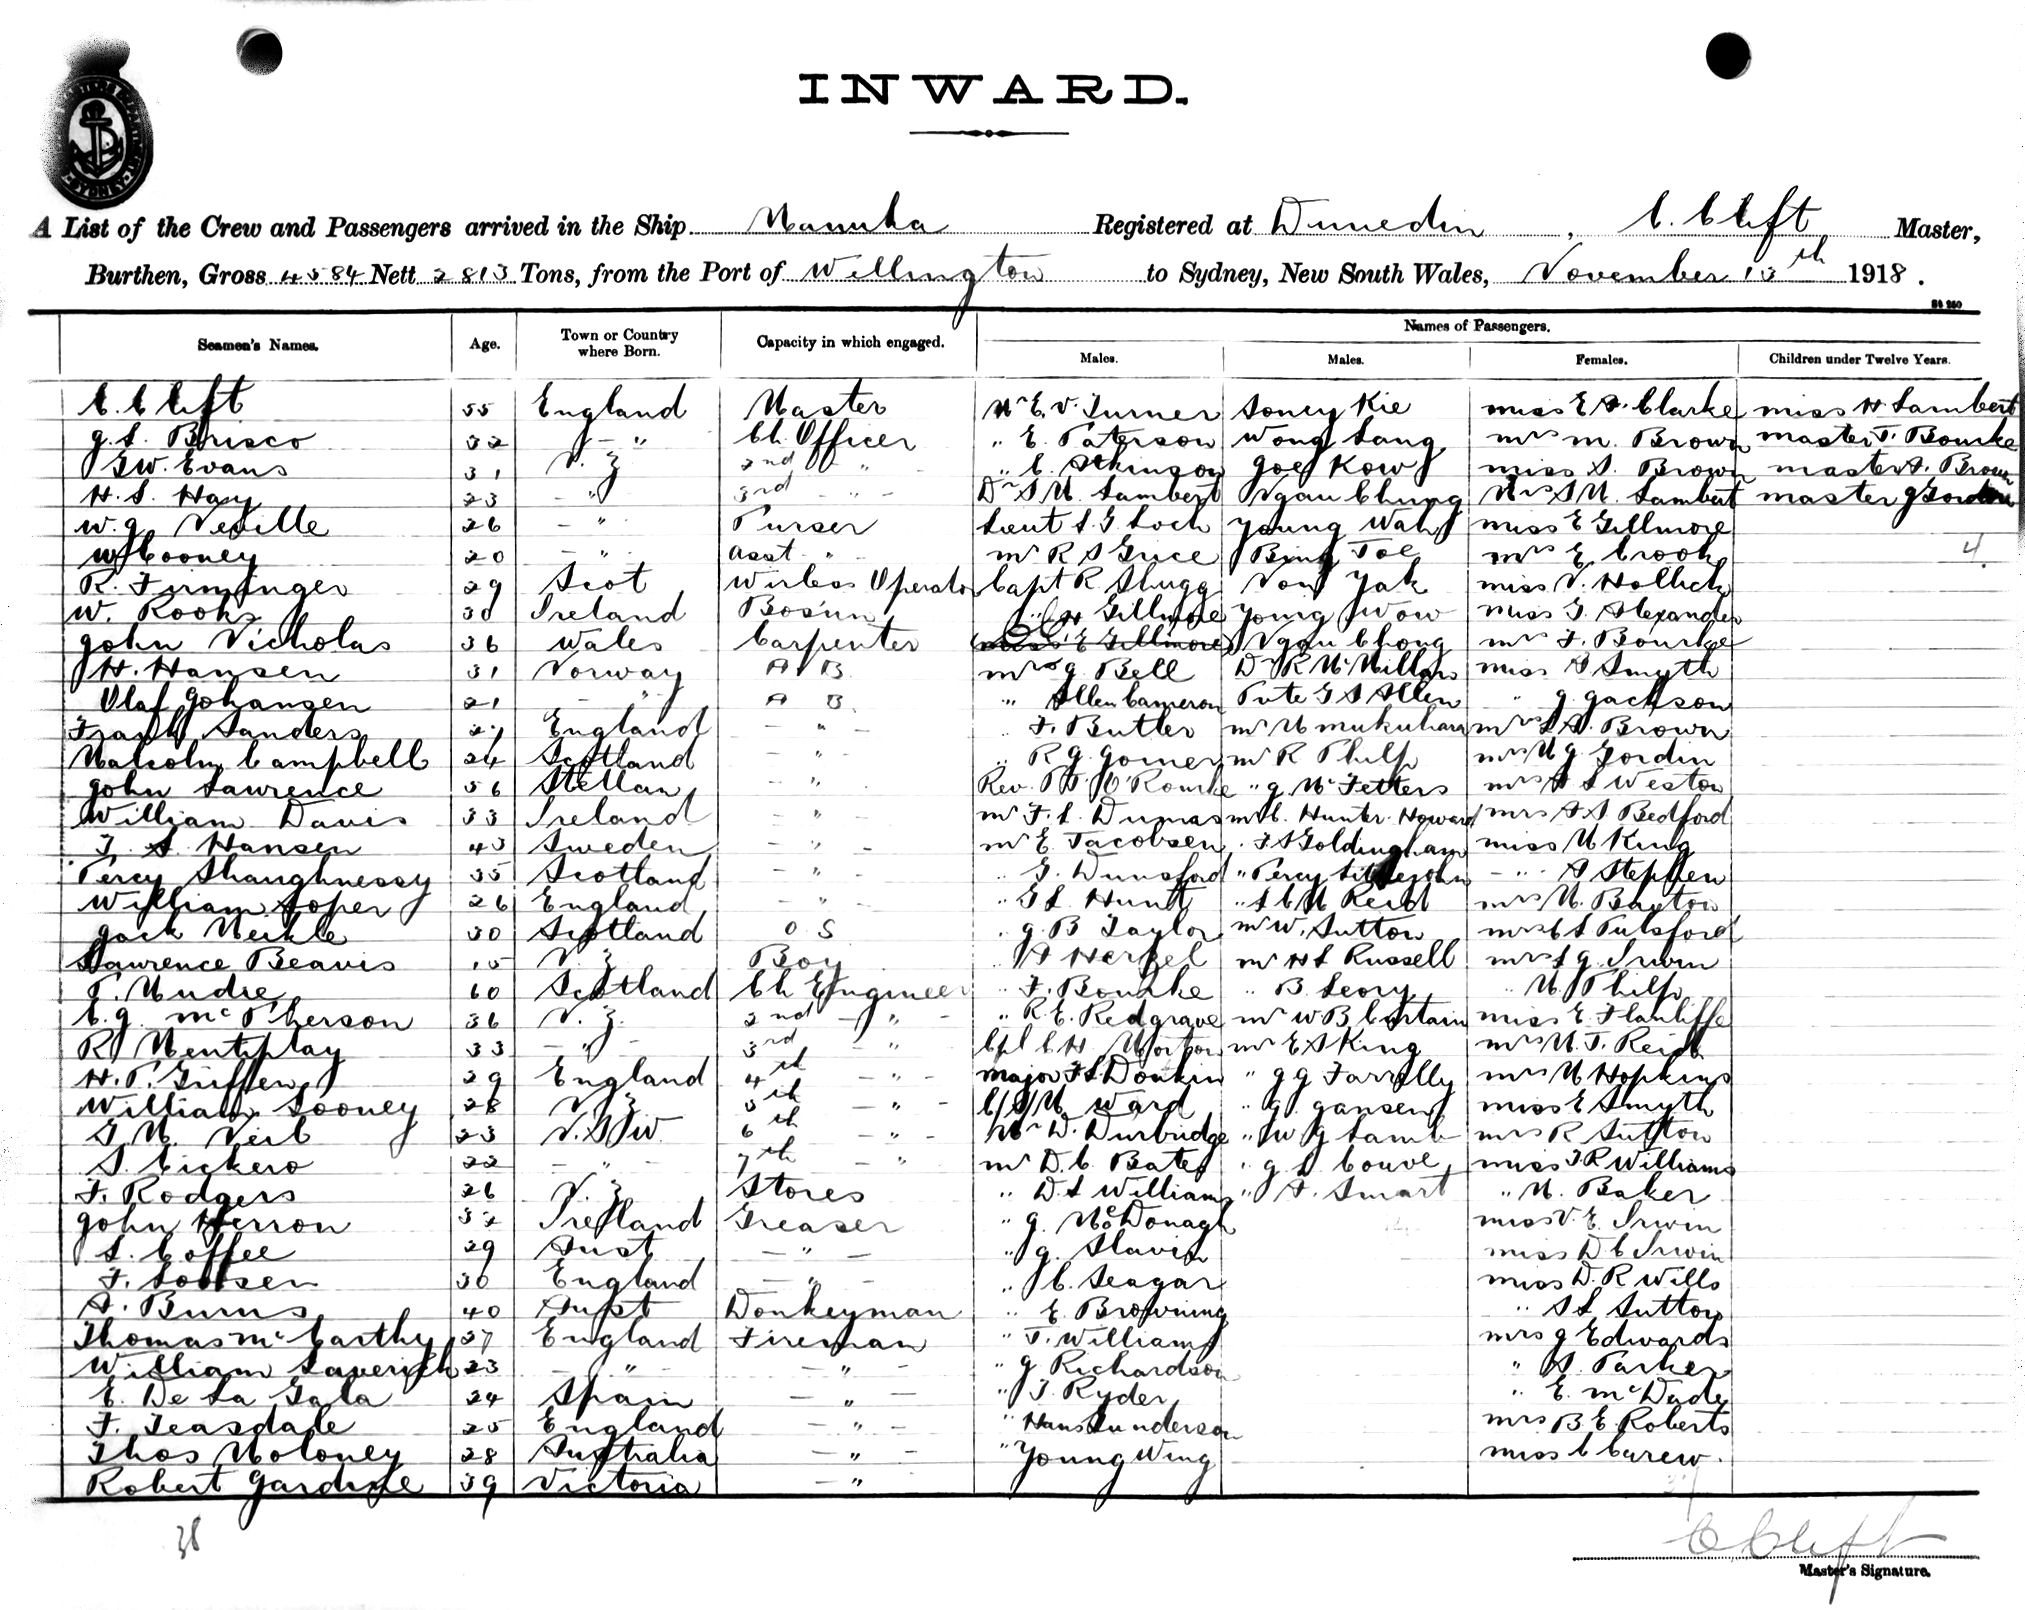 INWARD.
A List of the Crew and Passengers arrived in the Ship Manuka Registered at Dunedin, C. Clift Master,
Burthen, Gross 4584 Nett 2813 Tons, from the Port of Wellington to Sydney, New South Wales, November 13th 1918.
Names of Passengers.
Seamen's Names. Age. Town or Country where Born. Capacity in which engaged. Males. Males. Females. Children under Twelve Years.
C. Clift 55 England Master Mr E. V. Turner Soney Kie Miss E A. Clarke Miss H Lambert
J. L. Brisco 32 - " Ch. Officer " E. Paterson Wong Lang Mrs M. Brown Master T. Bourke
G W. Evans 31 N. Z 2nd " " C. Atkinson Joe Kow Miss A. Brown Master A. Brown
H. S. Hay 23 - " 3rd - " - Dr S M. Lambert Ngan Chung Mrs S M. Lambert Master J Gordin
W. J. Neville 26 - " Purser Lieut L G Loch Young Wah Miss E Gillmore
W Cooney 20 - " Asst " Mr R S Grice Bing Toe Mrs E. Crook 4
R. Firminger 29 Scot Wirless Operator Capt R Slugg Yak Miss V. Hollick
W. Rooks 30 Ireland Bosun " H Gillmore Young Wow Miss G. Alexander
John Nicholas 36 Wales Carpenter Miss E Gillmore Ngan Chong Mrs F. Bourke
H. Hansen 31 Norway A B Mr J Bell Dr R McMillan Miss A Smyth
Olaf Johansen 21 - " A B " Allen Cameron Pvte G S Allen " J. Jackson
Frank Sanders 27 England - " " F. Butler Mr Mrs L A. Brown
Malcolm Campbell 24 Scotland - " " R J. Mr R Philp Mrs M J Gordin
John Lawrence 56 - " Rev. O'Rourke " J. McFetters Mrs A S Weston
William Davis 33 Ireland - " Mr F. L. Dumas Mr C. Hunter Howard Mrs A A Bedford
Hansen 43 Sweden - " - Mr E. Jacobsen F S Goldingham Miss M King
Percy Shaughnessy 35 Scotland - " - " G. Dunsford " Percy Littlejohn - " A Stephen
William Soper 26 England - " - " G L Hunt " Reid Mrs M. Buxton
Jack Meikle 30 Scotland O S " J. B Taylor Mr W. Sutton Mrs C S Pulsford
Lawrence Beavis 15 N. Z Boy " H Mr H L Russell Mrs L J. Irwin
60 Scotland Ch Engineer " F. Bourke " B. Leory " M. Philp
C. J. McPherson 36 N. Z. 2nd - " - " R. E. Redgrave Mr W B Miss E
R Mentiplay 33 - " - 3rd " Cpl C H Morton Mr E S King Mrs M. J. Reid
H. P. 29 England 4th - " - Major F L Donkin " J J Farrelly Mrs M Hopkins
William Looney 28 N. Z 5th - " - M. Ward " J. Jansen Miss E Smyth
G M. 23 N. S W 6th " - Mr D. Durbridge " W J Lamb Mrs R Sutton
22 - " - 7th " Mr D. C. Bates " J. Miss J R Williams
F. Rodgers 26 N. Z Stores " D. L Williams " A. Smart " M. Baker
John Herron Ireland Greaser " J. McDonagh Miss V. E. Irwin
Coffee 29 Aust - " - " J. Slavin Miss D C Irwin
F. 30 England - " - " C. Seagar Miss D. R Wills
A. Burns 40 Aust Donkeyman " E. Browning " Sutton
Thomas McCarthy England Fireman " T. Williams Mrs J Edwards
William 23 - " " - " J Richardson " A. Parker
E. De La Gala 24 Spain - " - " J. Ryder " E. McDade
F. Teasdale 25 England - " - " Hans Gunderson Mrs B. E. Roberts
Thos Moloney 28 Australia - " - " Young Wing Miss C Carew
Robert Gardine 39 Victoria - "
38
C Clift
Master's Signature.